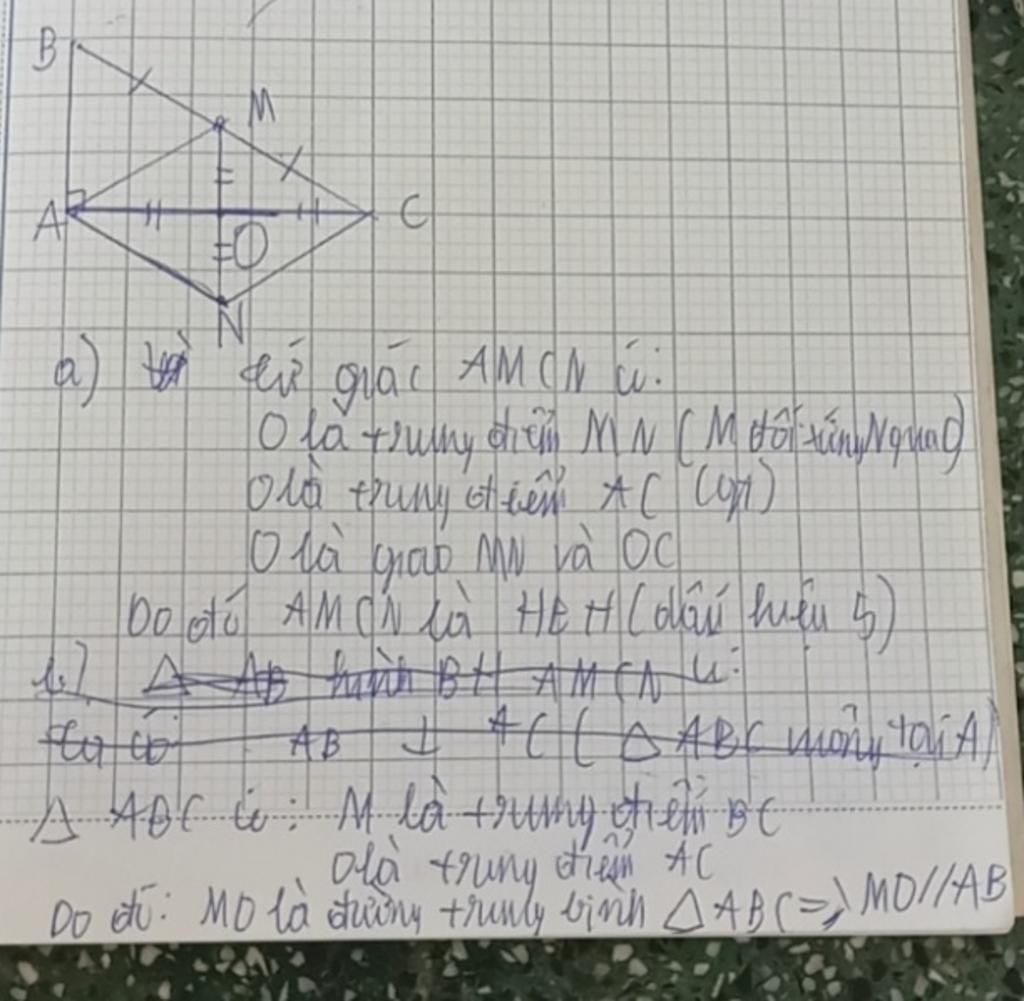 B
M
A
C
O
N
a) tứ giác AMCN có:
O là trung điểm MN (M đối xứng N qua O)
O là trung điểm AC (gt)
O là giao MN và OC
Do đó AMCN là HBH (dấu hiệu 5)
b) Δ AB hình BH AMCN có:
Ta có AB ⊥ AC (Δ ABC vuông tại A)
Δ ABC có: M là trung điểm BC
O là trung điểm AC
Do đó: MO là đường trung bình Δ ABC => MO // AB